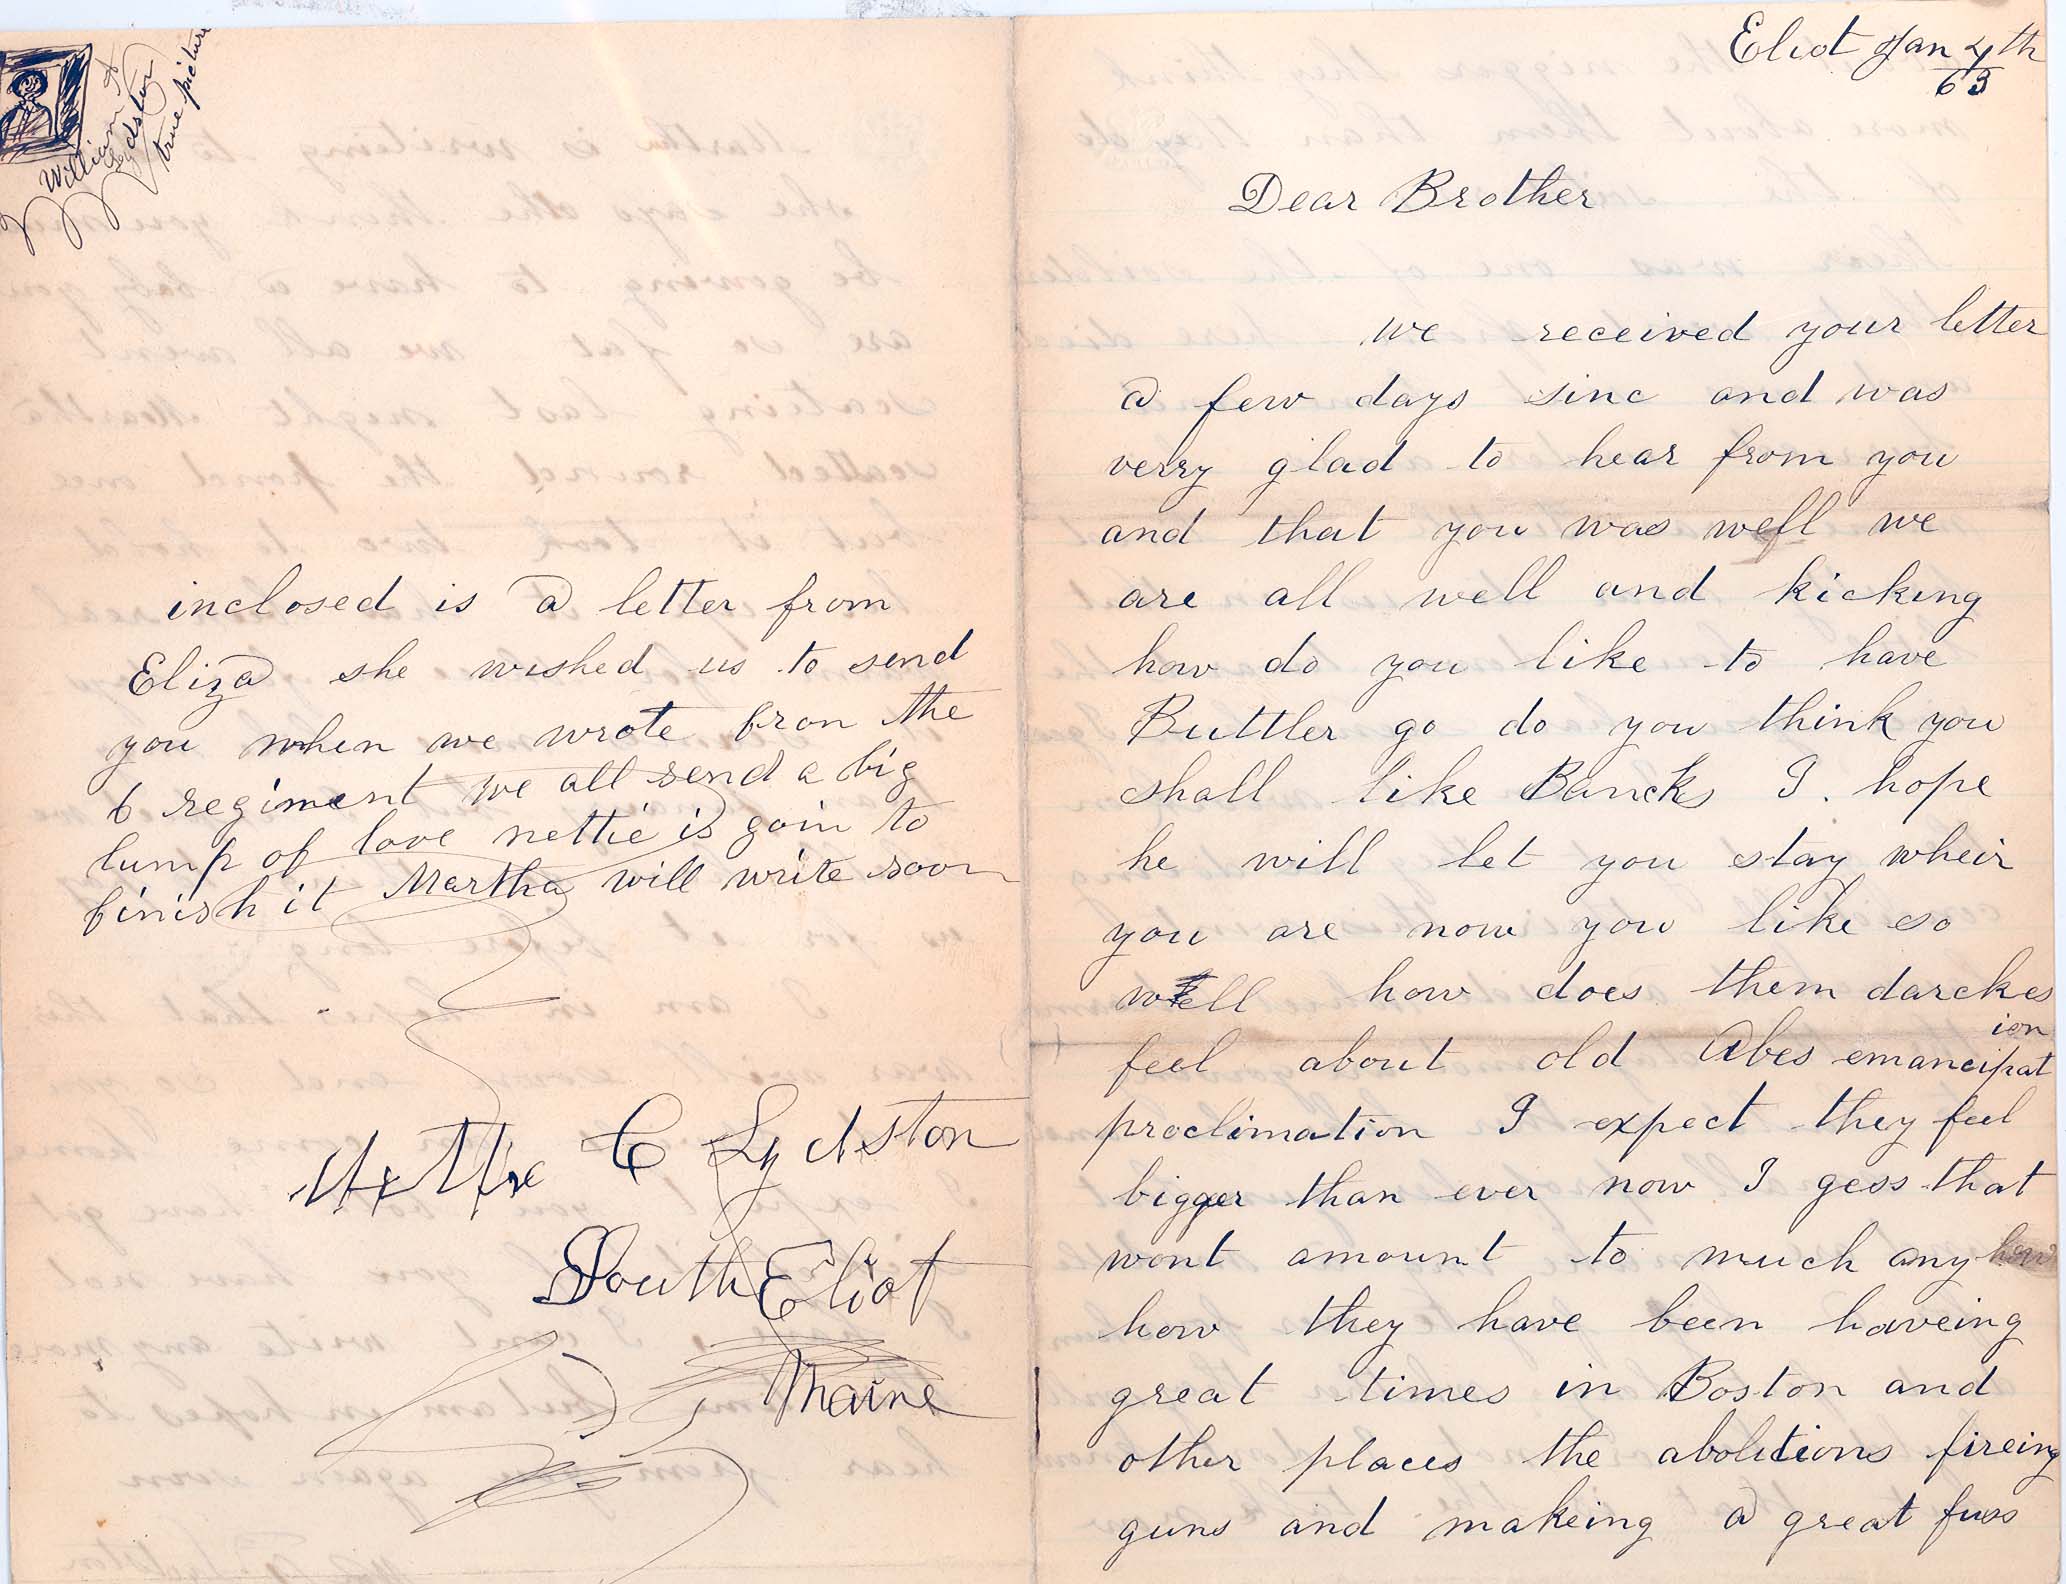 Eliot Jan 4th
63
Dear Brother
we received your letter
a few days sinc and was
verry glad to hear from you
and that you was well we
are all well and kicking
how do you like to have
Buttler go do you think you
shall like Bancks I hope
he will let you stay wheir
you are now you like so
well how does them darckes
feel about old Abes emancipat
ion
proclimation I expect they feel
bigger than ever now I gess that
wont amount to much any how
how they have been haveing
great times in Boston and
other places the abolitions fireing
guns and makeing a great fuss
William A
Lydston
true picture
inclosed is a letter from
Eliza she wished us to send
you when we wrote fron the
6 regiment we all send a big
lump of love nettie is goin to
finish it Martha will write soon
Nettie C Lydston
South Eliot
Maine